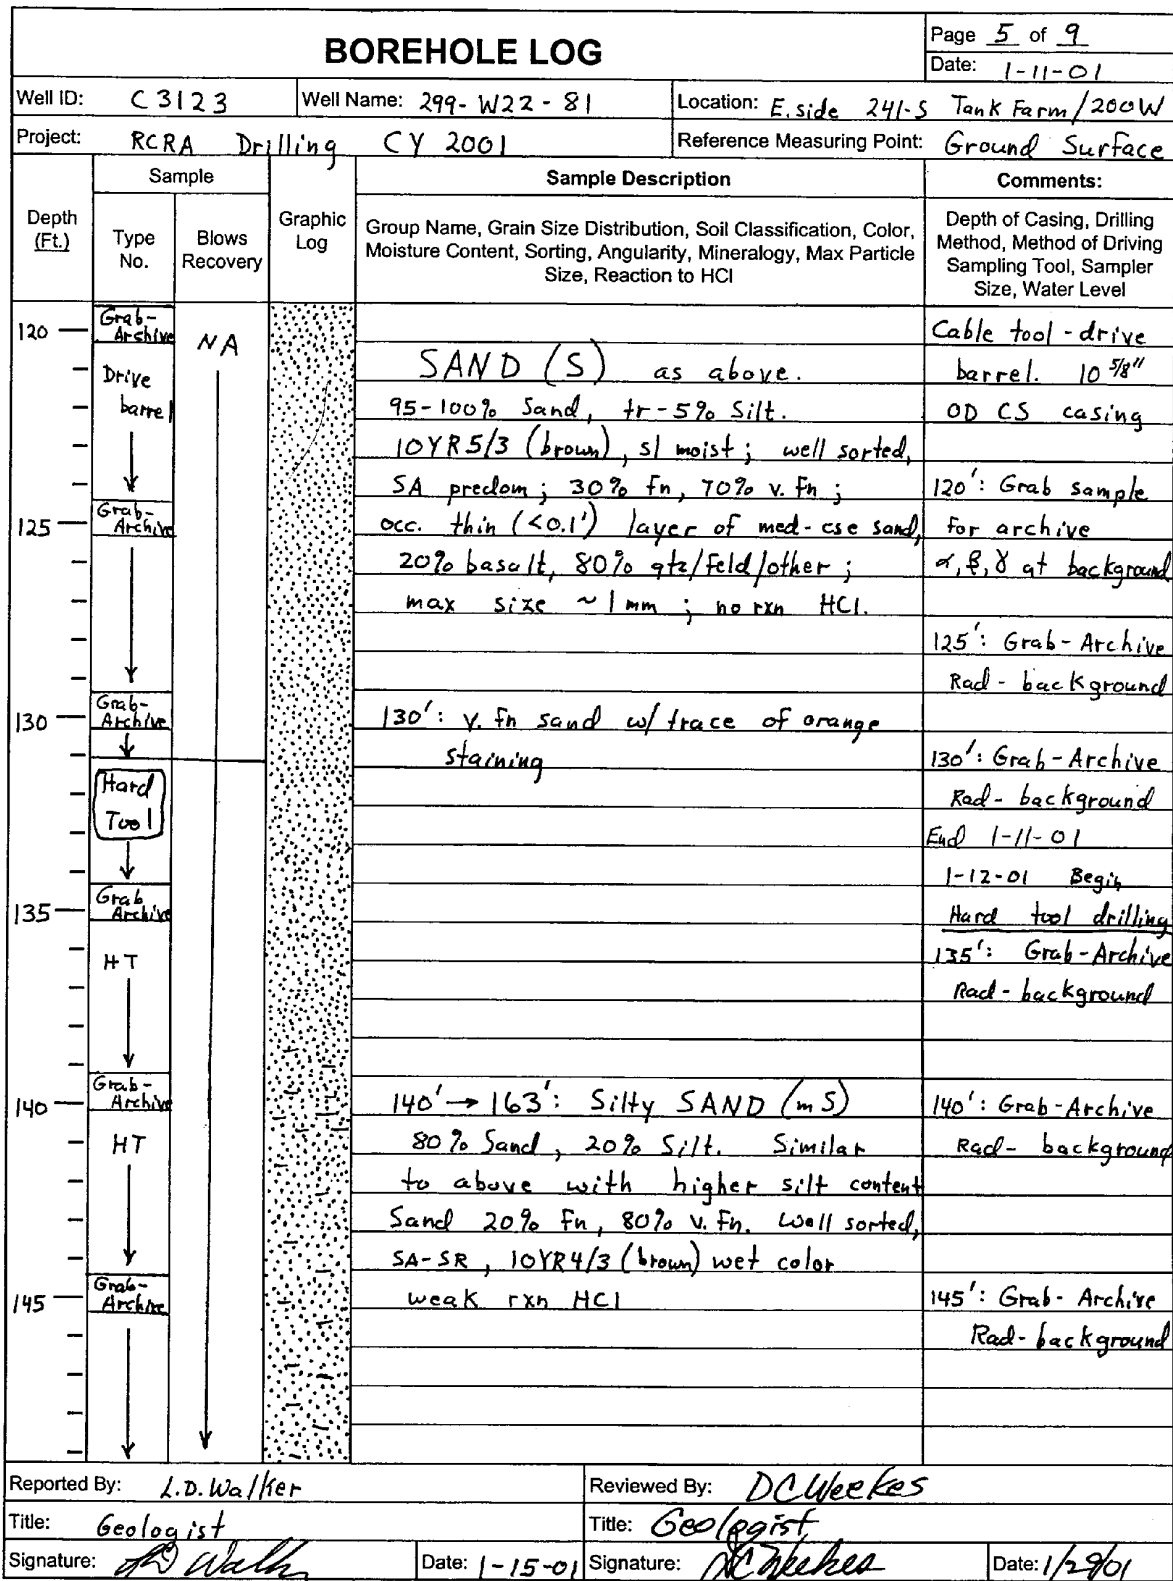 BOREHOLE LOG
Page 5 of 9
Date: 1-11-01
Well ID: C3123
Well Name: 299-W22-81
Location: E. side 241-S Tank Farm/200W
Project: RCRA Drilling CY 2001
Reference Measuring Point: Ground Surface
Depth (Ft.)
Sample
Type No.
Blows Recovery
Graphic Log
Sample Description
Group Name, Grain Size Distribution, Soil Classification, Color,
Moisture Content, Sorting, Angularity, Mineralogy, Max Particle
Size, Reaction to HCl
Comments:
Depth of Casing, Drilling
Method, Method of Driving
Sampling Tool, Sampler
Size, Water Level
120
Grab-
Archive
NA
Drive
barrel
125
Grab-
Archive
130
Grab-
Archive
Hard
Tool
135
Grab
Archive
HT
140
Grab-
Archive
HT
145
Grab-
Archive
SAND (S) as above.
95-100% Sand, tr-5% Silt.
10YR5/3 (brown), sl moist; well sorted,
SA predom; 30% fn, 70% v. fn;
occ. thin (<0.1') layer of med-cse sand,
20% basalt, 80% qtz/feld/other;
max size ~1mm; no rxn HCl.
130': v. fn sand w/ trace of orange
staining
140' → 163': Silty SAND (mS)
80% Sand, 20% Silt. Similar
to above with higher silt content
Sand 20% fn, 80% v. fn. Well sorted,
SA-SR, 10YR4/3 (brown) wet color
weak rxn HCl
Cable tool-drive
barrel. 10 5/8"
OD CS casing
120': Grab sample
for archive
α, β, γ at background
125': Grab-Archive
Rad-background
130': Grab-Archive
Rad-background
End 1-11-01
1-12-01 Begin
Hard tool drilling
135': Grab-Archive
Rad-background
140': Grab-Archive
Rad-background
145': Grab-Archive
Rad-background
Reported By: L.D. Walker
Reviewed By: DC Weekes
Title: Geologist
Title: Geologist
Signature: LD Walker
Date: 1-15-01
Signature: DC Weekes
Date: 1/29/01